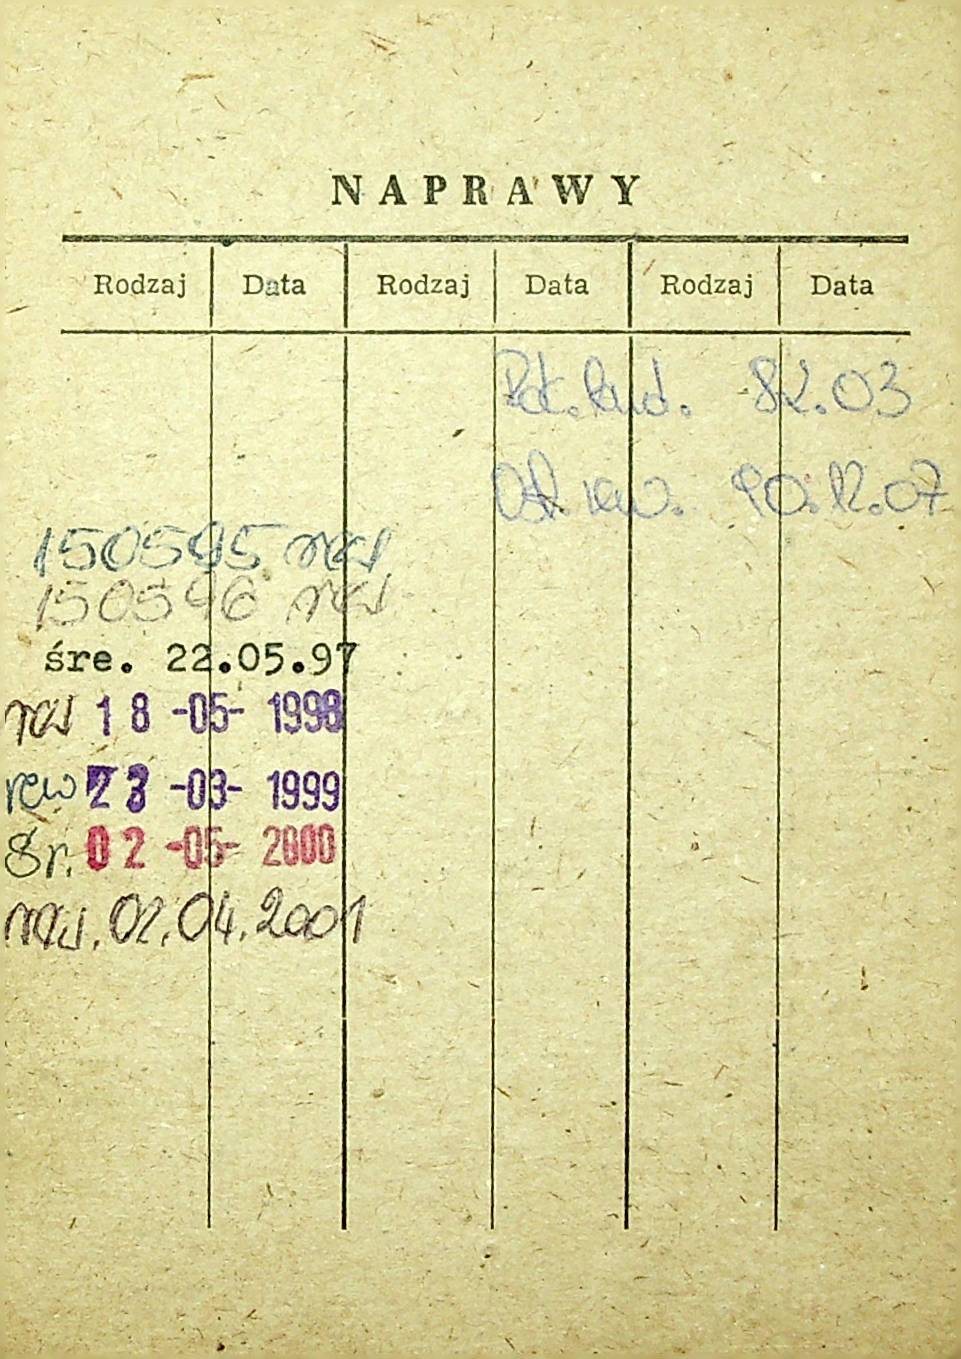 NAPRAWY
Rodzaj Data Rodzaj Data Rodzaj Data
Rok. bud. 82.03
Ost. rew. 90.12.07
150595 rew
150596 rew
śre. 22.05.97
rew 18 -05- 1998
rew 23 -03- 1999
śr. 02 -05- 2000
rew. 02.04.2001